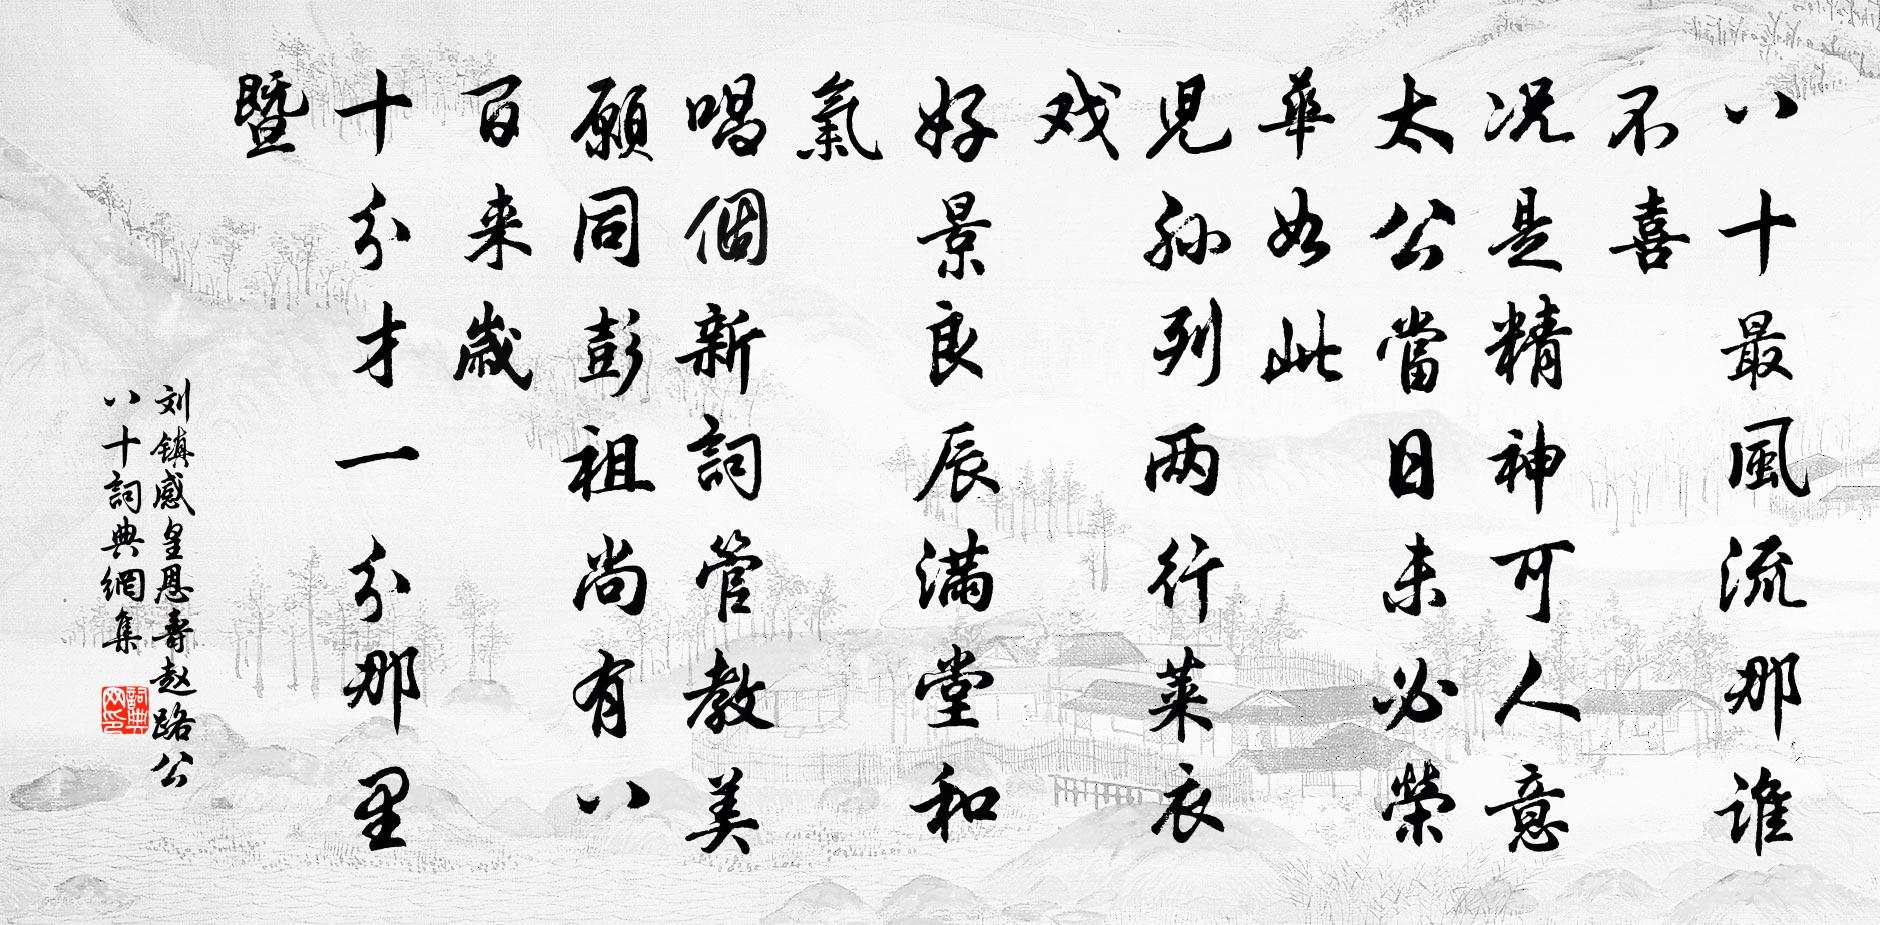 八十最風流那誰
不喜
况是精神可人意
太公當日未必榮
華如此
見孙列两行莱衣
戏
好景良辰滿堂和
氣
唱個新詞管教美
願同彭祖尚有八
百来歲
十分才一分那里
暨
刘镇感皇恩壽赵路公
八十詞典網集
詞典
网印